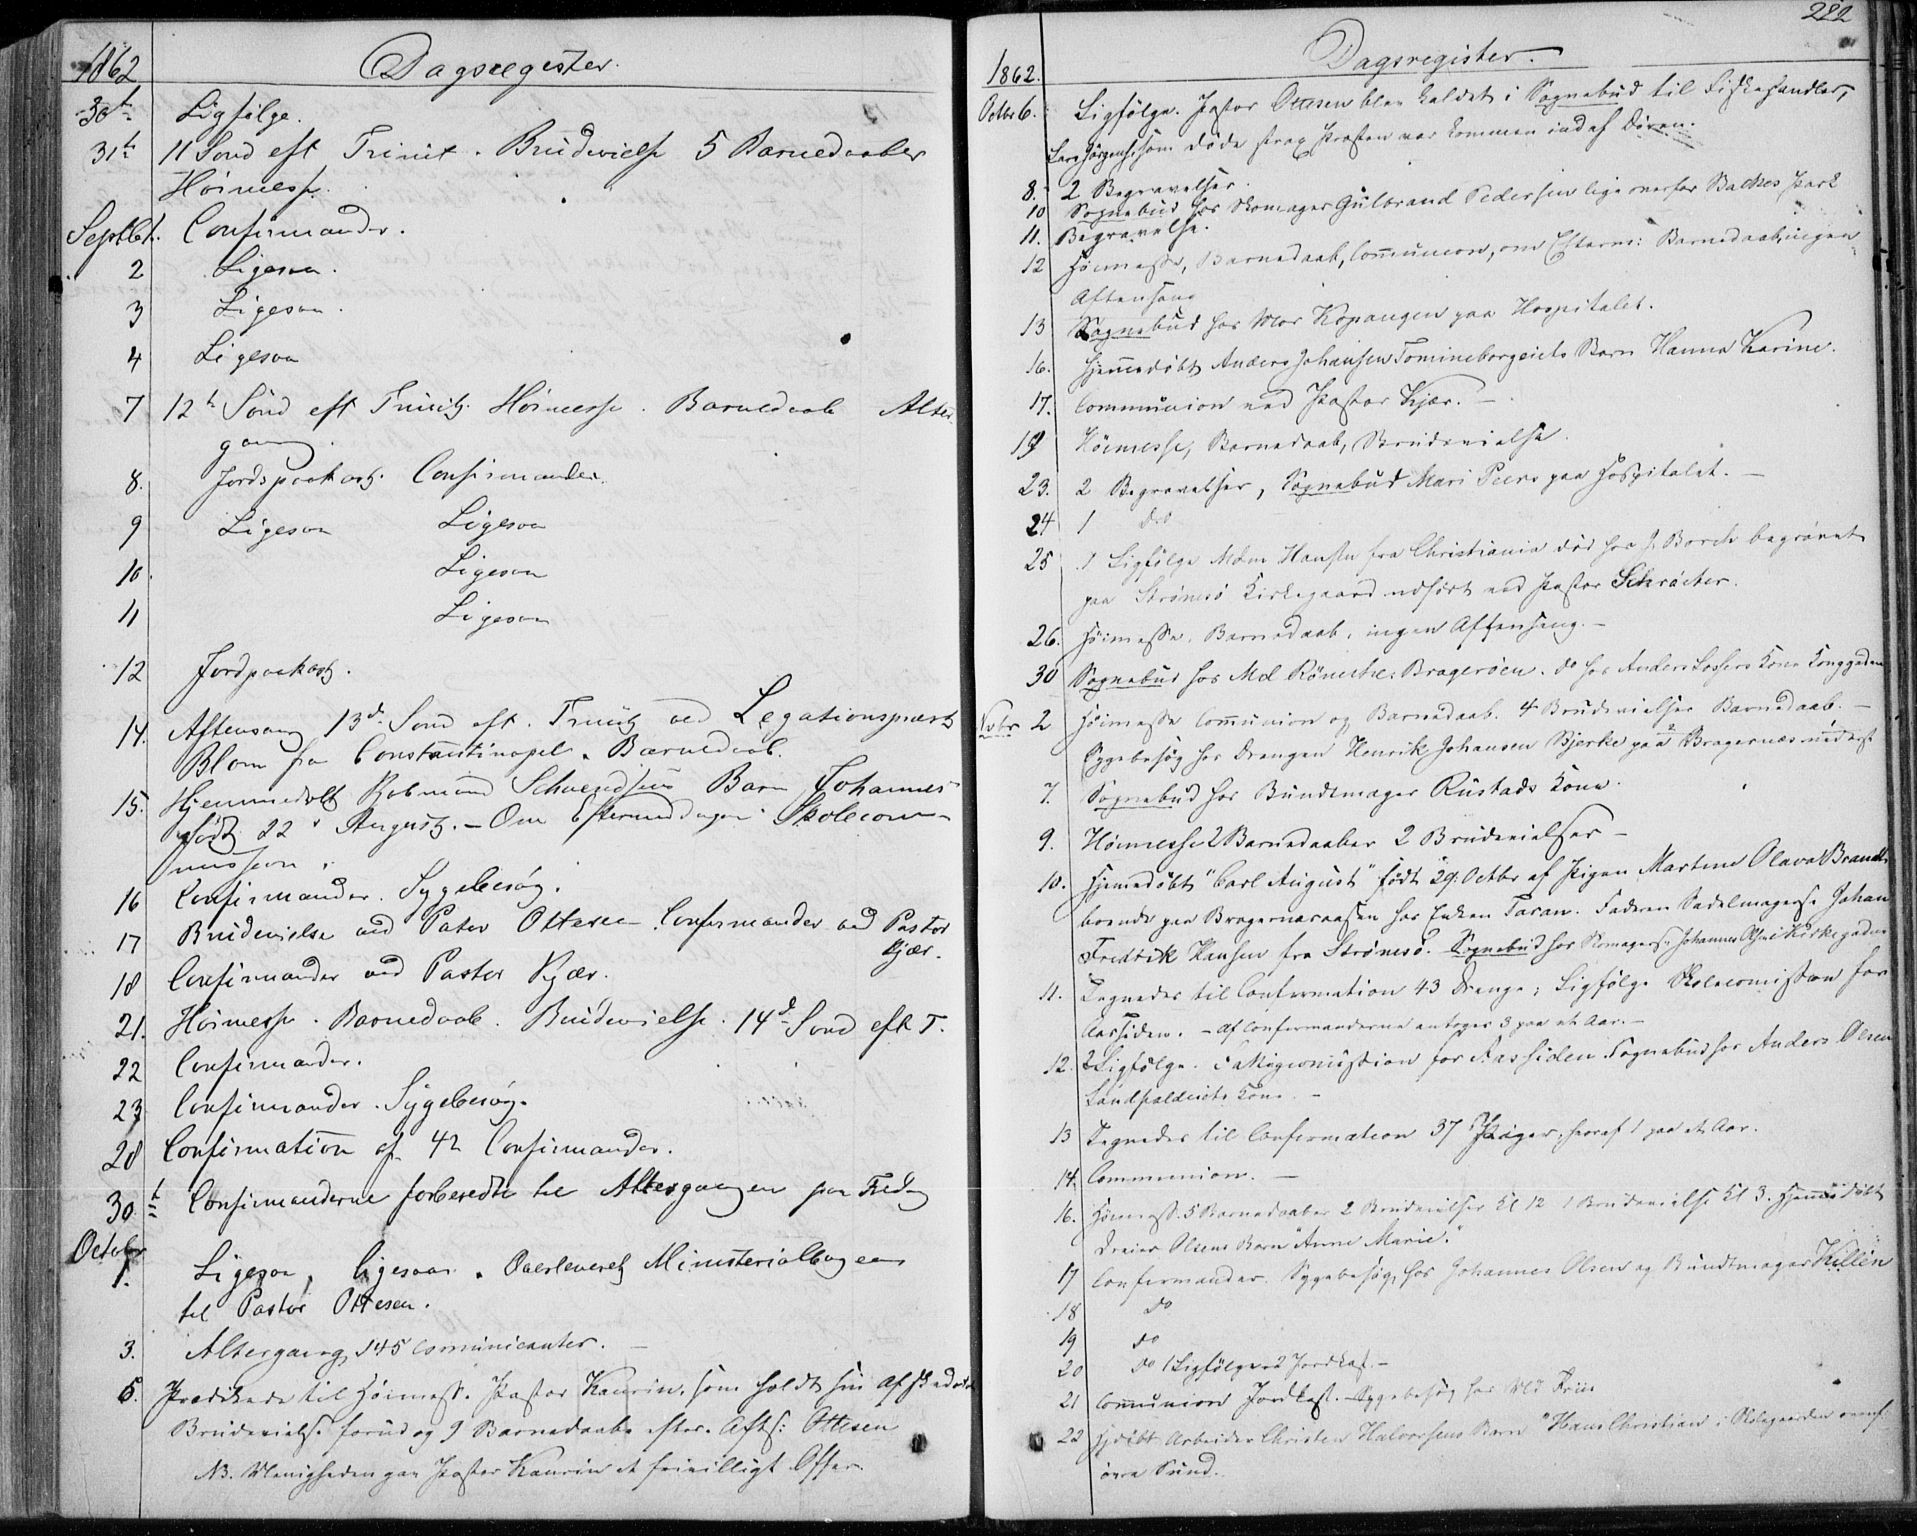 1862 Dagsregister.
30te Ligfølge.
31te 11 Sønd eft Trinit. Brudevielse 5 Barnedaaber
Høimesse.
Septb 1. Confirmander.
2 Ligesaa.
3 Ligesaa.
4 Ligesaa
7 12te Sønd eft Trinit. Høimesse. Barnedaab Alter
gang.
8. Jordpaakast. Confirmander.
9 Ligesaa Ligesaa
10. Ligesaa
11 Ligesaa
12 Jordpaakast.
14. Aftensang 13de Sønd eft. Trinit ved Legationspræst
Blom fra Constantinopel. Barnedaab.
15. Hjemmedøbt Kobmand Schwendsens Barn Johannes
født 22 August. – Om Eftermiddagen Skolecom-
mission.
16 Confirmander. Sygebesøg.
17 Brudevielse ved Pastor Ottesen. Confirmander ved Pastor
Kjær.
18 Confirmander ved Pastor Kjær.
21. Høimesse. Barnedaab. Brudevielse. 14de Sønd eft T.
22 Confirmander.
23 Confirmander. Sygebesøg.
28 Confirmation af 42 Confirmander.
30te Confirmanderne forberedte til Altergangen paa Fredag
October
1. Ligesaa, ligesaa. Overleveret Ministerialbogen
til Pastor Ottesen.
3. Altergang 145 Communicanter. –
5. Prædikede til Høimess. Pastor Kaurin, som holdt sin Afskeds
Brudevielse forud og 9 Barnedaabe efter. Afts: Ottesen
NB. Menigheden gav Pastor Kaurin et frivilligt Offer.
222
1862. Dagsregister.
Octbr 6. Ligfølge. Pastor Ottesen blev kaldet i Sognebud til Fiskehandler,
Lars Jørgens, som døde strax Præsten var kommen ind af Døren.
8. 2 Begravelser.
10 Sognebud hos Skomager Gulbrand Pedersen lige overfor Baches Park
11. Begravelse.
12 Høimesse, Barnedaab, Communion, om Efterm: Barnedaab, ingen
Aftensang
13 Sognebud hos Mor Kopangen paa Hospitalet.
16. Hjemmedøbt Anders Johansen Tomineborgeiets Barn Hanna Karine.
17. Communion ved Pastor Kjær. –
19 Høimesse, Barnedaab, Brudevielse.
23. 2 Begravelser, Sognebud Mari Peers paa Hospitalet. –
24 1 do
25 1 Ligfølge Mdm Hansen fra Christiania død hos J. Borch begravet
paa Strømsø Kirkegaard udført ved Pastor Schrøeter.
26. Høimesse, Barnedaab, ingen Aftensang. –
30 Sognebud hos Md Røneslie: Bragerøen. do hos Anders Kone Konggaden
Nvbr 2 Høimesse Communion og Barnedaab. 4 Brudevielser Barnedaab. –
Sygebesøg hos Drengen Henrik Johansen Bjerke paa Bragernæs
7. Sognebud hos Bundtmager Rustads Kone.
9. Høimesse 2 Barnedaaber 2 Brudevielser –
10. Hjemedøbt "Carl August" født 29. Octbr af Pigen Martine Olava Brandt
boende paa Bragernæsaasen hos Enken Taran. Faderen Sadelmagers. Johan
Fredrik Hansen fra Strømsø. Sognebud hos Skomagers. Johannes Ols i Kirkegaden
11. Tegnedes til Confirmation 43 Drenge; Ligfølge Skolecomission for
Aassiden. – Af Confirmanderne antoges 3 paa et Aar. –
12. 2 Ligfølge. Fattigcomission for Aassiden. Sognebud hos Anders Olsen
Kone. –
13 Tegnedes til Confirmation 37 Piger, heraf 1 paa et Aar.
14. Communion. –
16. Høimess. 5 Barnedaaber 2 Brudevielser Kl 12 1 Brudevielse Kl 3. Hjemmedøbt
Dreier Olsens Barn "Anne Marie."
17 Confirmander. Sygebesøg, hos Johannes Olsen og Bundtmager Killin
18 do
19 do
20 do 1 Ligfølge 2 Jordkast. –
21 Communion Jordkast. – Sygebesøg hos Md
22 Hjdøbt Arbeider Christen Halvorsens Barn "Hans Christian" i Skolegaarden
øvre Sund.